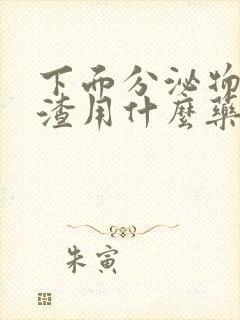 下面分泌物
渣用什麼藥
朱寅